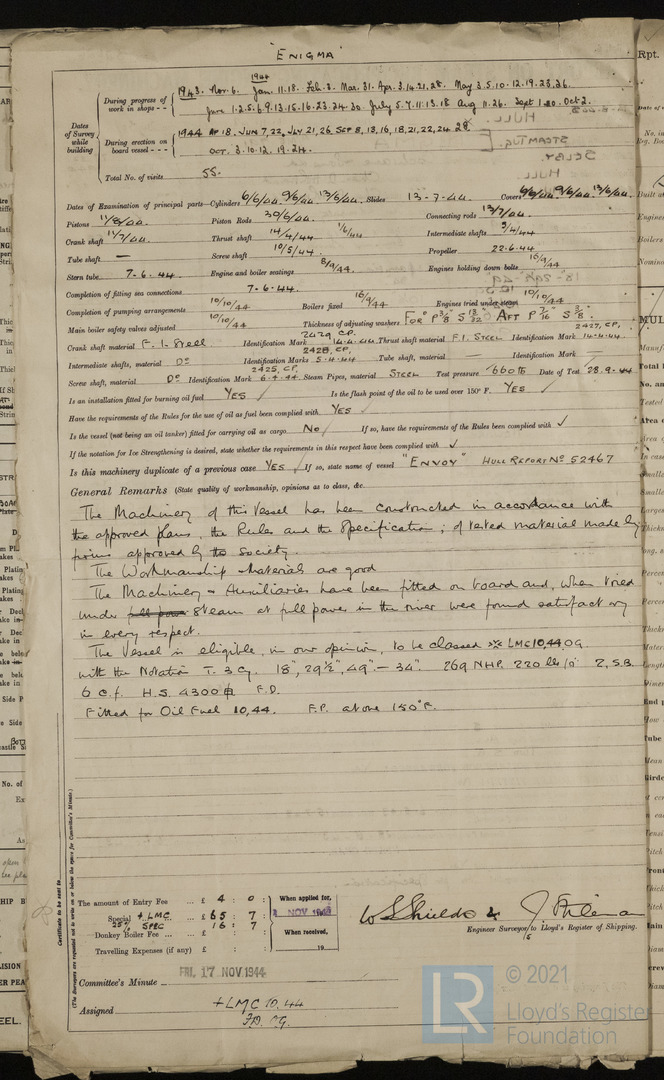 'ENIGMA'
1944
During progress of work in shops - - 1943. Nov. 6. Jan. 11.18. Feb. 2. Mar. 31. Apr. 3.14.21.28. May 3.5.10.12.19.23.26.
June 1.2.5.6.9.13.15.16.23.24.30 July 5.7.11.13.18 Aug 11.26. Sept 1. Oct. 2.
Dates of Survey while building
During erection on board vessel - - - 1944 AP 18. JUN 7,22, JLY 21,26, SEP 8,13,16,18,21,22,24.28
OCT. 3.10.12.19.24.
Total No. of visits 55.
Dates of Examination of principal parts—Cylinders 6/6/44. 9/6/44 13/6/44. Slides 13-7-44 Covers 6/6/44. 9/6/44. 13/6/44.
Pistons 11/8/44. Piston Rods 30/6/44. Connecting rods 13/7/44.
Crank shaft 11/7/44. Thrust shaft 14/4/44 1/6/44 Intermediate shafts 5/4/44
Tube shaft — Screw shaft 10/5/44 Propeller 22.6.44
Stern tube 7.6.44. Engine and boiler seatings 8/9/44. Engines holding down bolts 16/9/44
Completion of fitting sea connections 7.6.44.
Completion of pumping arrangements 10/10/44 Boilers fixed 16/9/44 Engines tried under steam 10/10/44
Main boiler safety valves adjusted 10/10/44 Thickness of adjusting washers FORD P 3/8 S 13/32 AFT P 7/16 S 3/8
Crank shaft material F.I. Steel Identification Mark 2429 CP. 14.4.44 Thrust shaft material F.I. STEEL Identification Mark 2427, CP, 14.4.44.
Intermediate shafts, material Do Identification Marks 2428, CP, 5.4.44 Tube shaft, material — Identification Mark —
Screw shaft, material Do Identification Mark 2425, CP. 6.4.44 Steam Pipes, material STEEL Test pressure 660 lb Date of Test 28.9.44
Is an installation fitted for burning oil fuel YES Is the flash point of the oil to be used over 150° F. YES
Have the requirements of the Rules for the use of oil as fuel been complied with YES
Is the vessel (not being an oil tanker) fitted for carrying oil as cargo No If so, have the requirements of the Rules been complied with ✓
If the notation for Ice Strengthening is desired, state whether the requirements in this respect have been complied with ✓
Is this machinery duplicate of a previous case YES If so, state name of vessel "ENVOY" HULL REPORT No 52467
General Remarks (State quality of workmanship, opinions as to class, &c.
The Machinery of this Vessel has been constructed in accordance with
the approved plans, the Rules and the Specification; of tested material made by
firms approved by the Society.
The Workmanship & Materials are good.
The Machinery & Auxiliaries have been fitted on board and, when tried
under full power steam at full power in the river were found satisfactory
in every respect.
The Vessel is eligible, in our opinion, to be classed LMC 10,44 OG.
with the Notation T. 3 Cy. 18", 29½", 49" - 34". 269 NHP. 220 lbs/□" 2, S.B.
6 c.f. H.S. 4300 F.D.
Fitted for Oil Fuel 10,44. F.P. above 150°F.
Certificate to be sent to
(The Surveyors are requested not to write on or below the space for Committee's Minute.)
The amount of Entry Fee ... £ 4 : 0 : When applied for,
Special + LMC ... £ 65 : 7 NOV 194
25% SPEC
Donkey Boiler Fee ... £ 16 : 7 When received,
Travelling Expenses (if any) £ : : 19
W S Shields & J
Engineer Surveyors to Lloyd's Register of Shipping.
Committee's Minute FRI. 17 NOV 1944
Assigned + LMC 10.44
FD. OG.
LR
© 2021
Lloyd's Register
Foundation